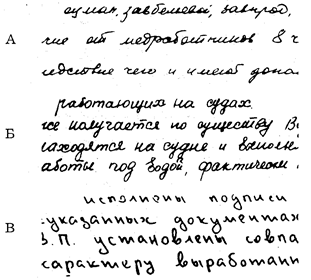 А
чие от медработников 8 ч
едствие чего и имеют дона
работающих на судах
Б
же получается по существу В
находятся на судне и выполне
аботы под водой, фактически
исполнены подписи
указанных документах
З.П. установлены совпа
характеру выработанн
В